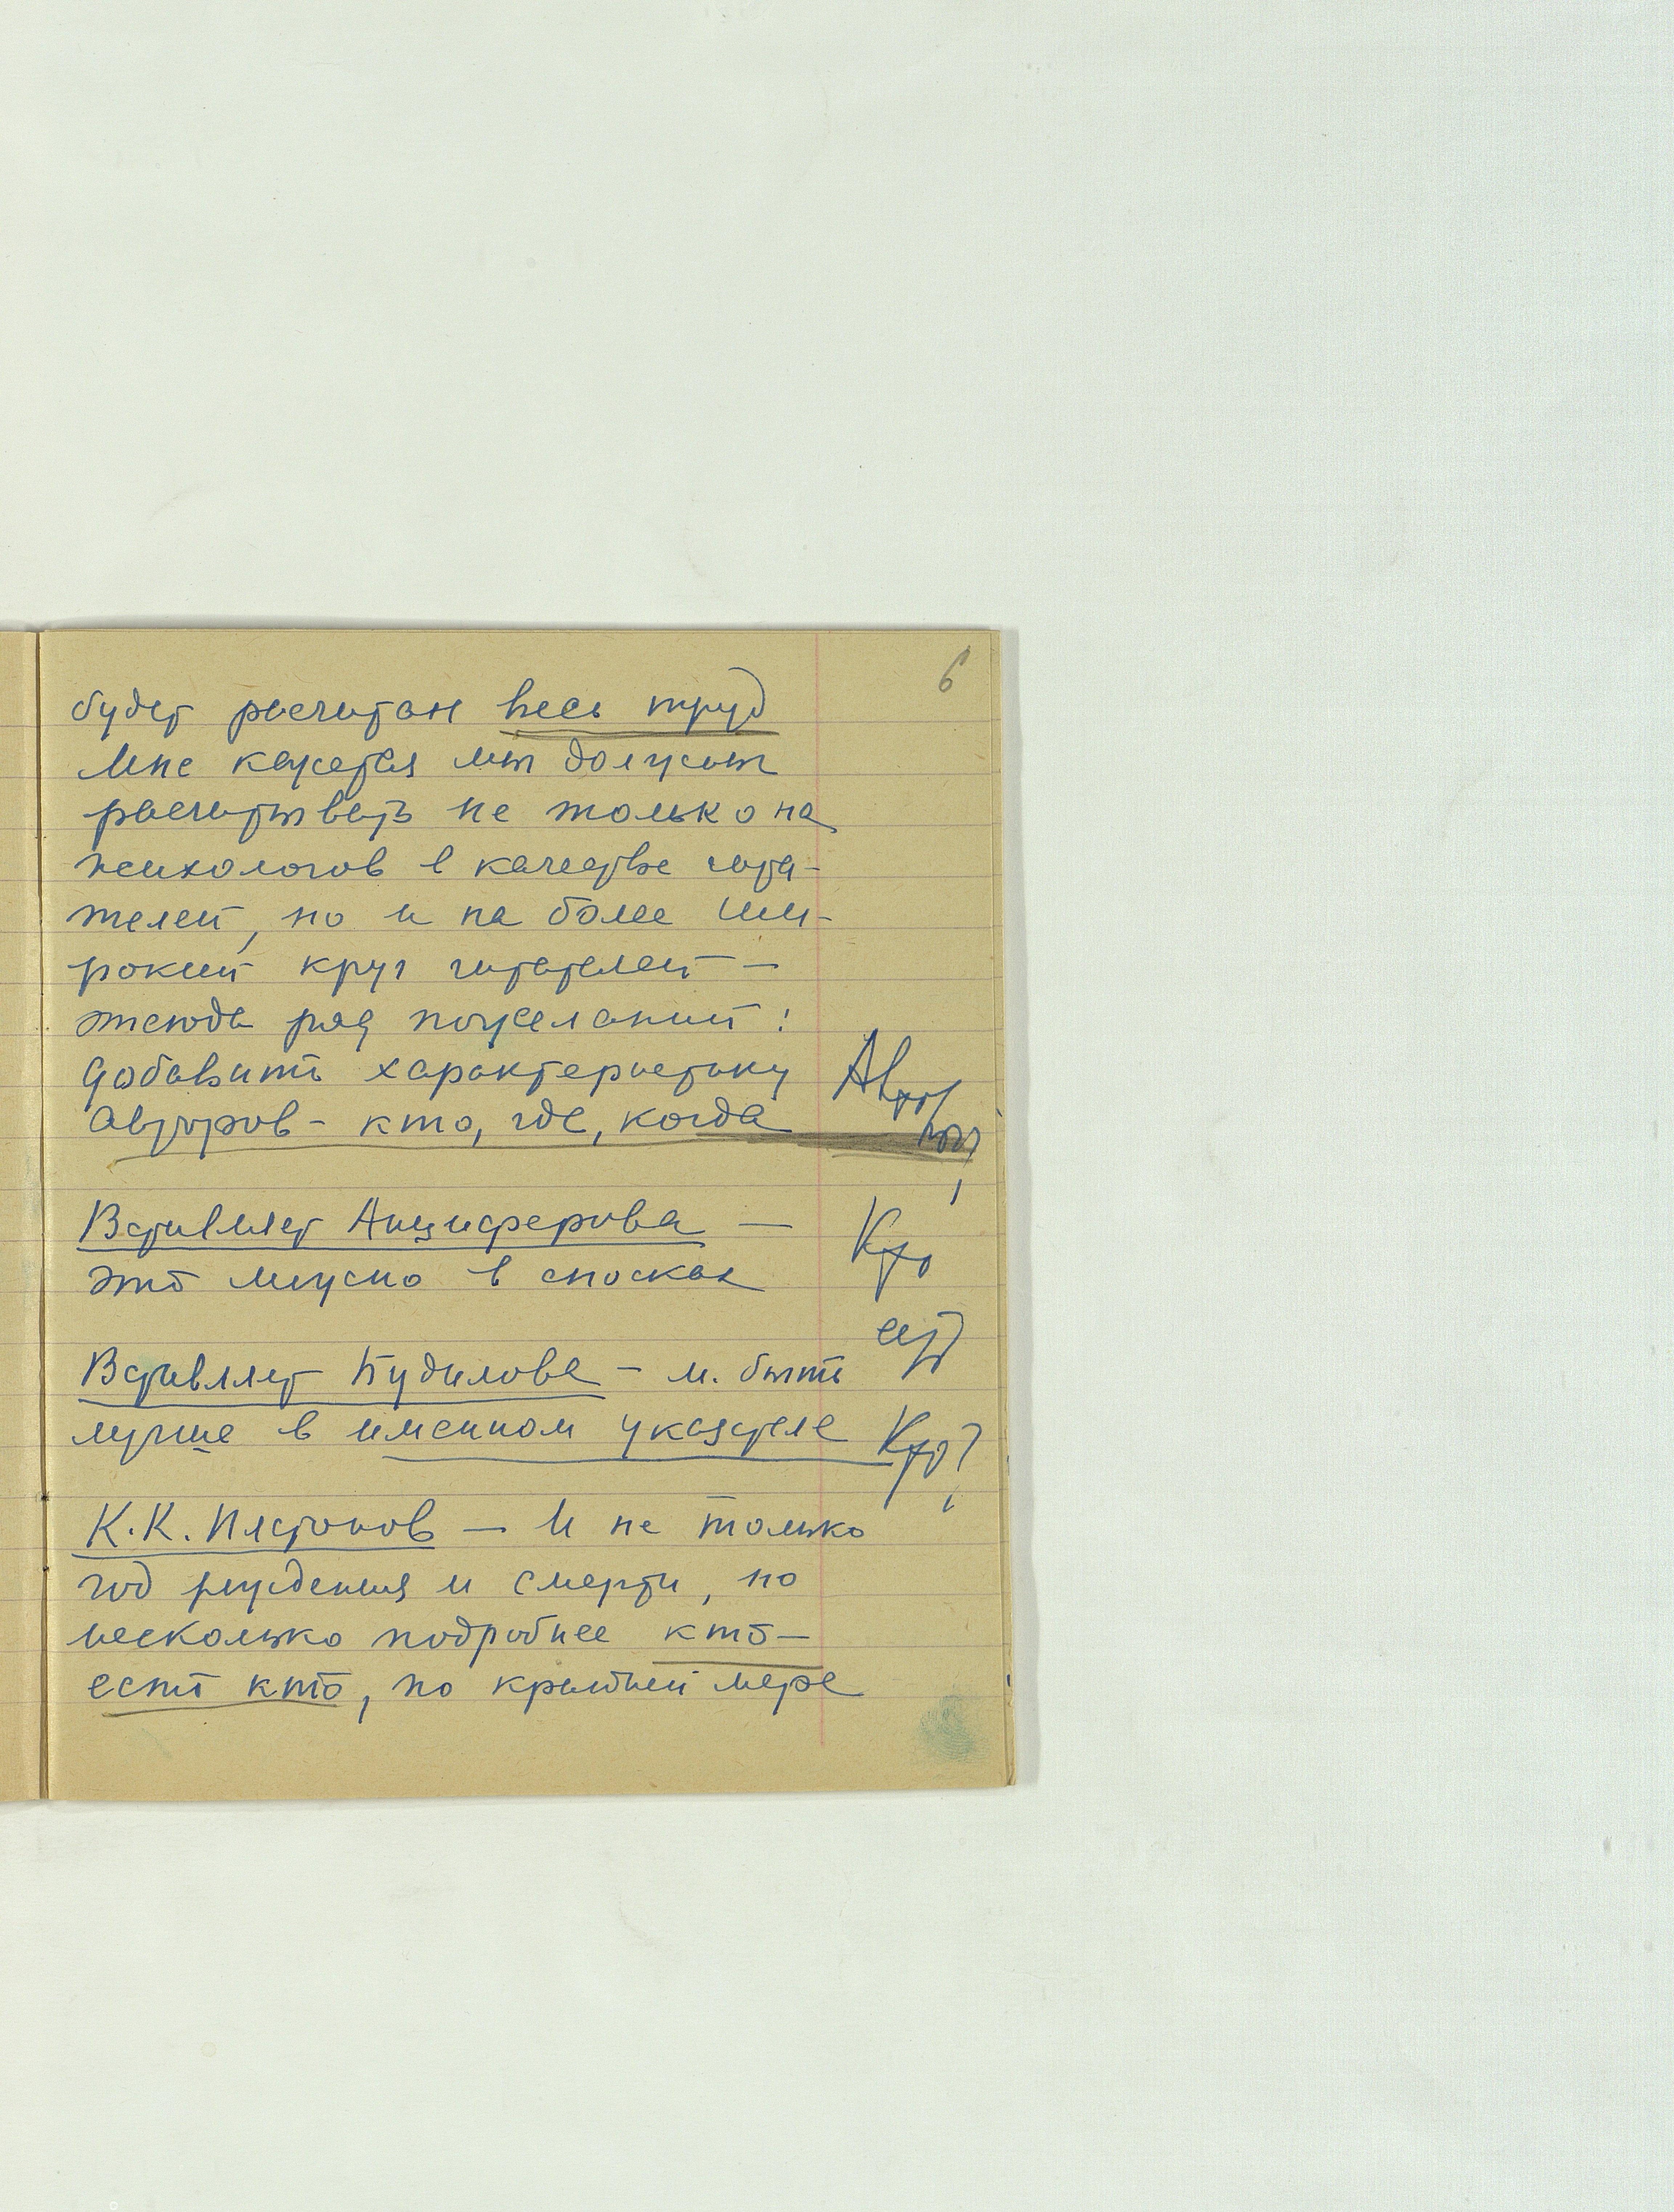 6
будет расчитан весь труд
Мне кажется мы должны
расчитывать не только на
психологов в качестве чита-
телей, но и на более ши-
рокий круг читателей —
отсюда ряд пожеланий:
добавить характеристику
авторов - кто, где, когда
Авто
ры
!
Вставляет Анциферова —
это можно в сносках
Кто
есть
Кто?
!
Вставляет Будилова - м. быть
лучше в именном указателе
К.К. Платонов — И не только
год рождения и смерти, но
несколько подробнее кто —
есть кто, по крайней мере